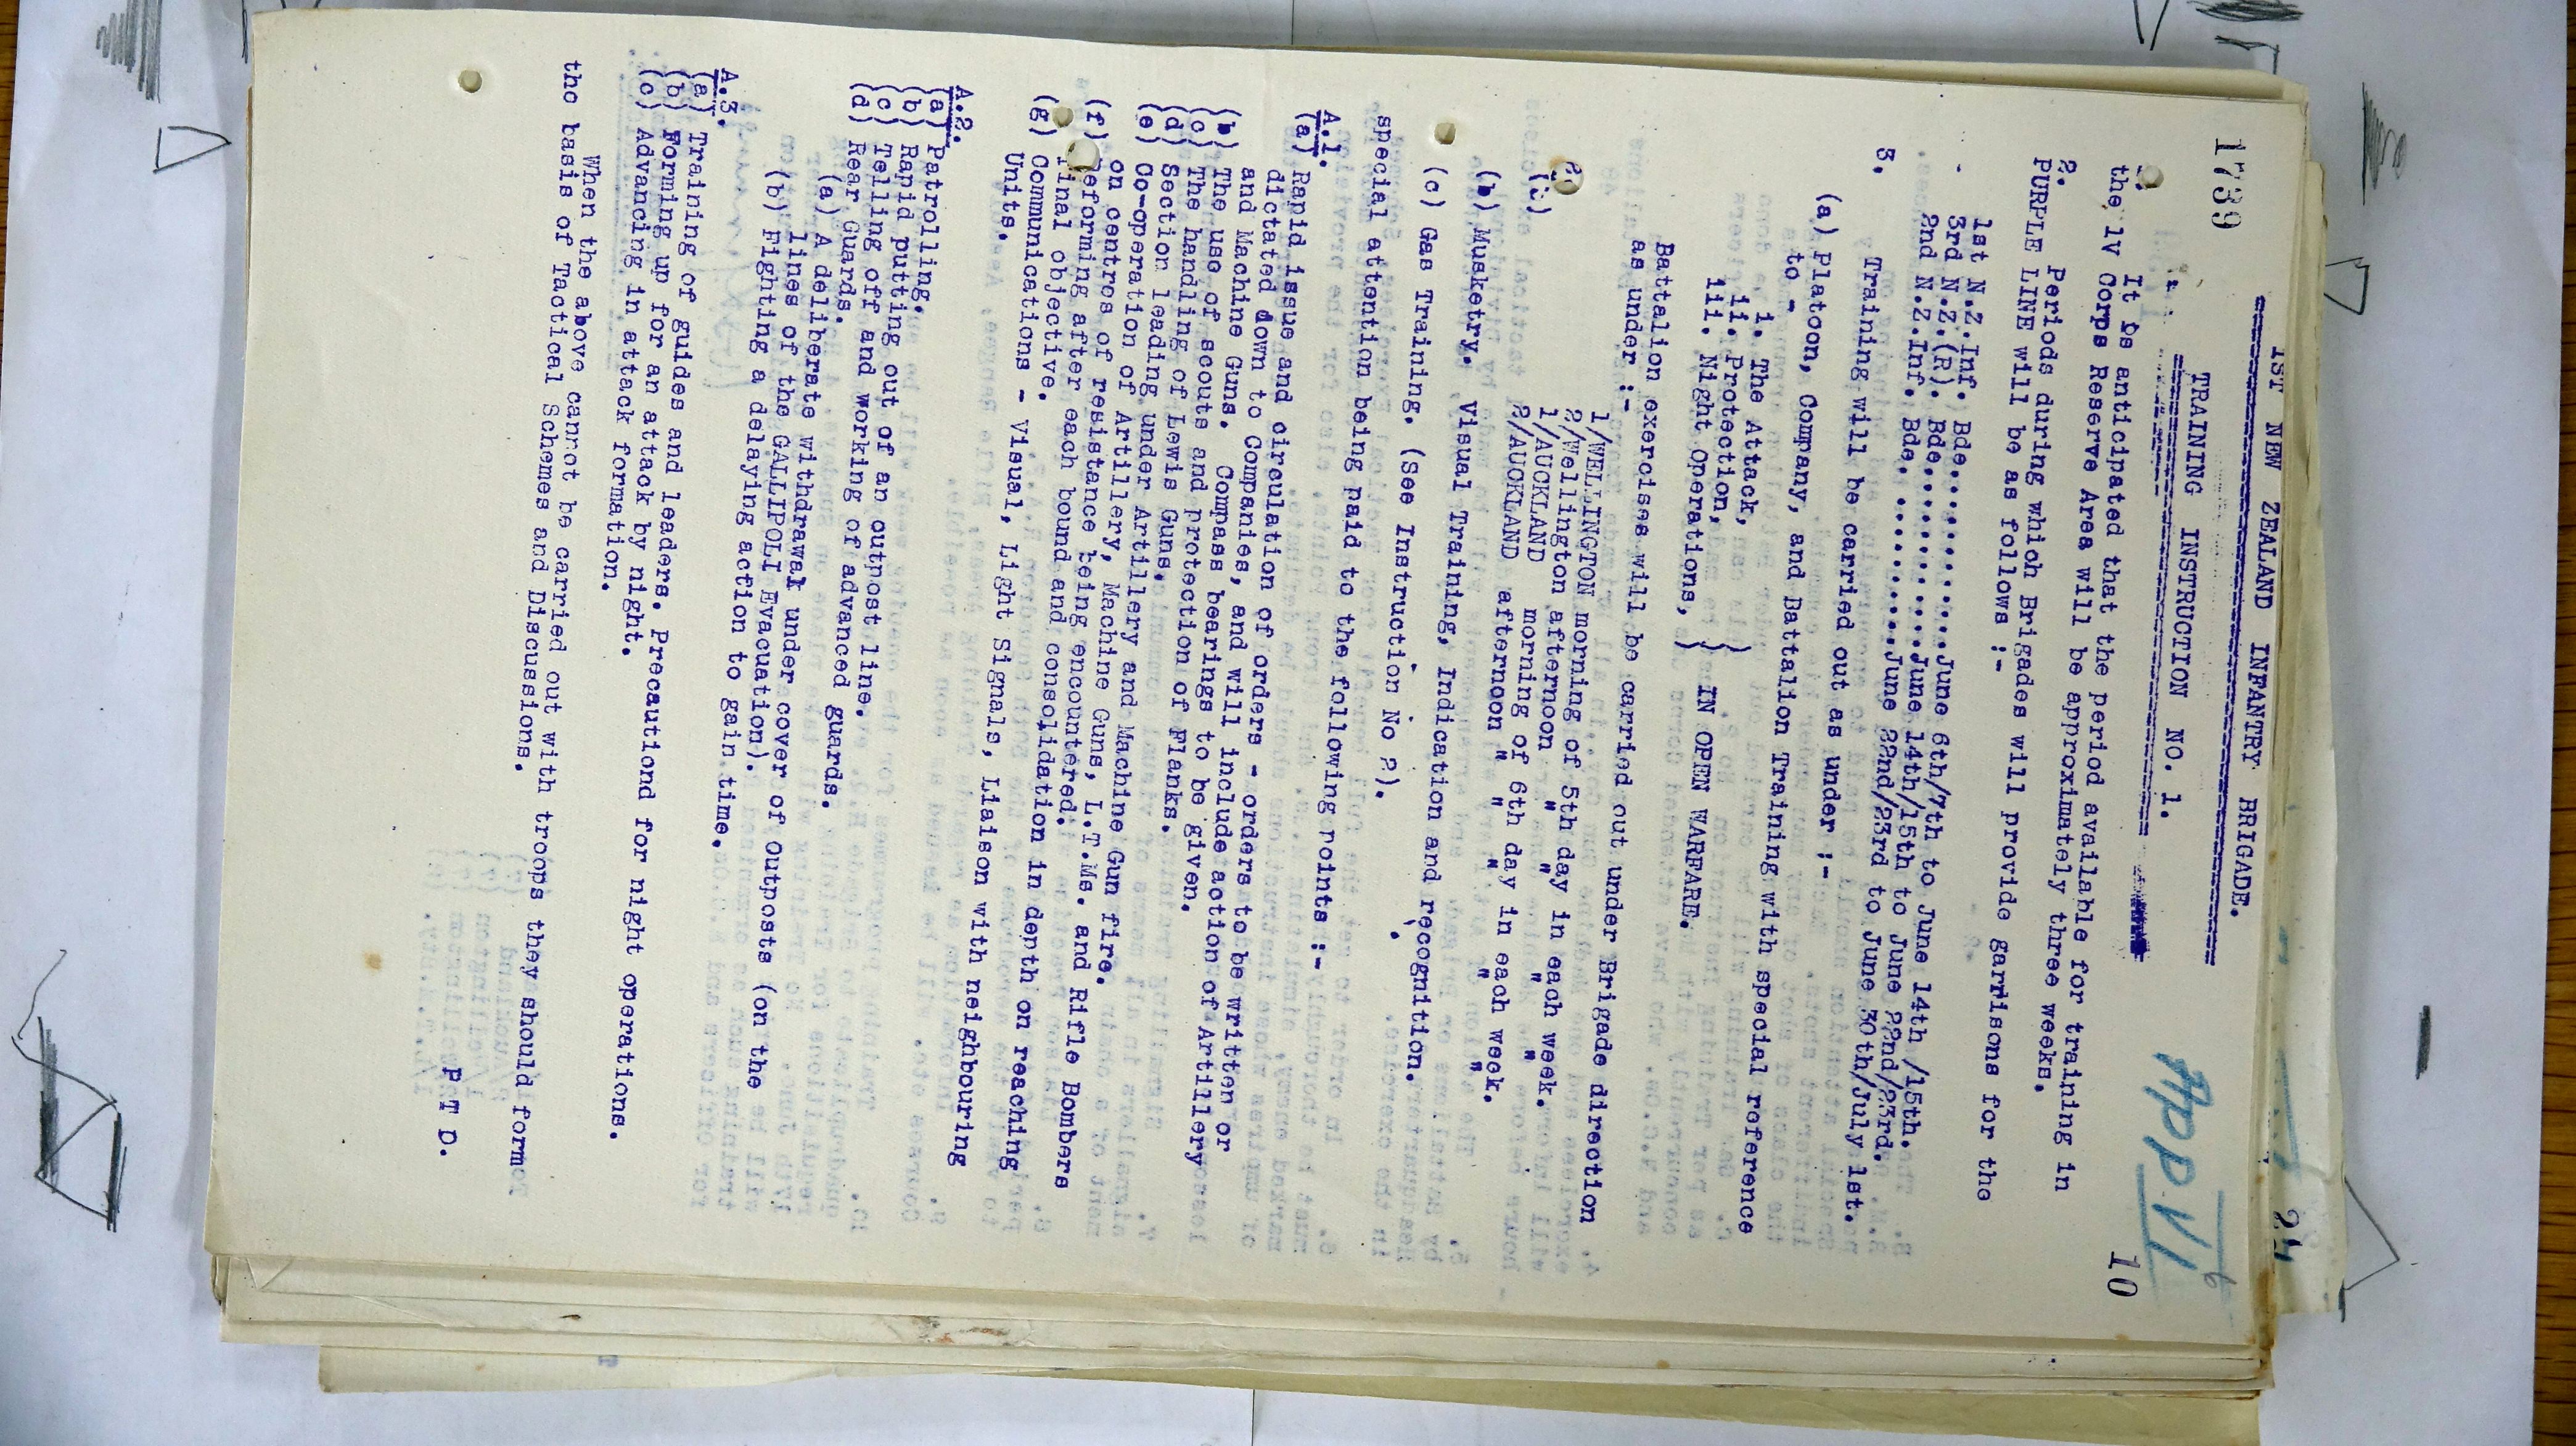 24
1739
App VI
6
10
1ST NEW ZEALAND INFANTRY BRIGADE.
TRAINING INSTRUCTION NO. 1.
It is anticipated that the period available for training in
the 1V Corps Reserve Area will be approximately three weeks.
2.
Periods during which Brigades will provide garrisons for the
PURPLE LINE will be as follows :-
1st N.Z.Inf. Bde...............June 6th/7th to June 14th /15th.
3rd N.Z.(R). Bde...............June 14th/15th to June 22nd/23rd.
2nd N.Z.Inf. Bde. .............June 22nd/23rd to June 30th/July 1st.
3.
Training will be carried out as under :-
(a) Platoon, Company, and Battalion Training with special reference
to -
i. The Attack, )
ii. Protection, ) IN OPEN WARFARE.
iii. Night Operations, )
Battalion exercises will be carried out under Brigade direction
as under :-
1/WELLINGTON morning of 5th day in each week.
2/Wellington afternoon " " " "
1/AUCKLAND morning of 6th day in each week.
2/AUCKLAND afternoon " " " "
(b) Musketry. Visual Training, Indication and recognition.
(c) Gas Training. (See Instruction No 2).
special attention being paid to the following points :-
A.1.
(a) Rapid issue and circulation of orders - orders to be written or
dictated down to Companies, and will include action of Artillery
and Machine Guns. Compass bearings to be given.
(b) The use of scouts and protection of Flanks.
(c) The handling of Lewis Guns.
(d) Section leading under Artillery and Machine Gun fire.
(e) Co-operation of Artillery, Machine Guns, L.T.Ms. and Rifle Bombers
on centres of resistance being encountered.
(f) Reforming after each bound and consolidation in depth on reaching
final objective.
(g) Communications - Visual, Light Signals, Liaison with neighbouring
Units.
A.2.
(a) Patrolling.
(b) Rapid putting out of an outpost line.
(c) Telling off and working of advanced guards.
(d) Rear Guards.
(a) A deliberate withdrawal under cover of Outposts (on the
lines of the GALLIPOLI Evacuation).
(b) Fighting a delaying action to gain time.
A.3.
(a) Training of guides and leaders. Precautiond for night operations.
(b) Forming up for an attack by night.
(c) Advancing in attack formation.
When the above cannot be carried out with troops they should form
the basis of Tactical Schemes and Discussions.
P T D.